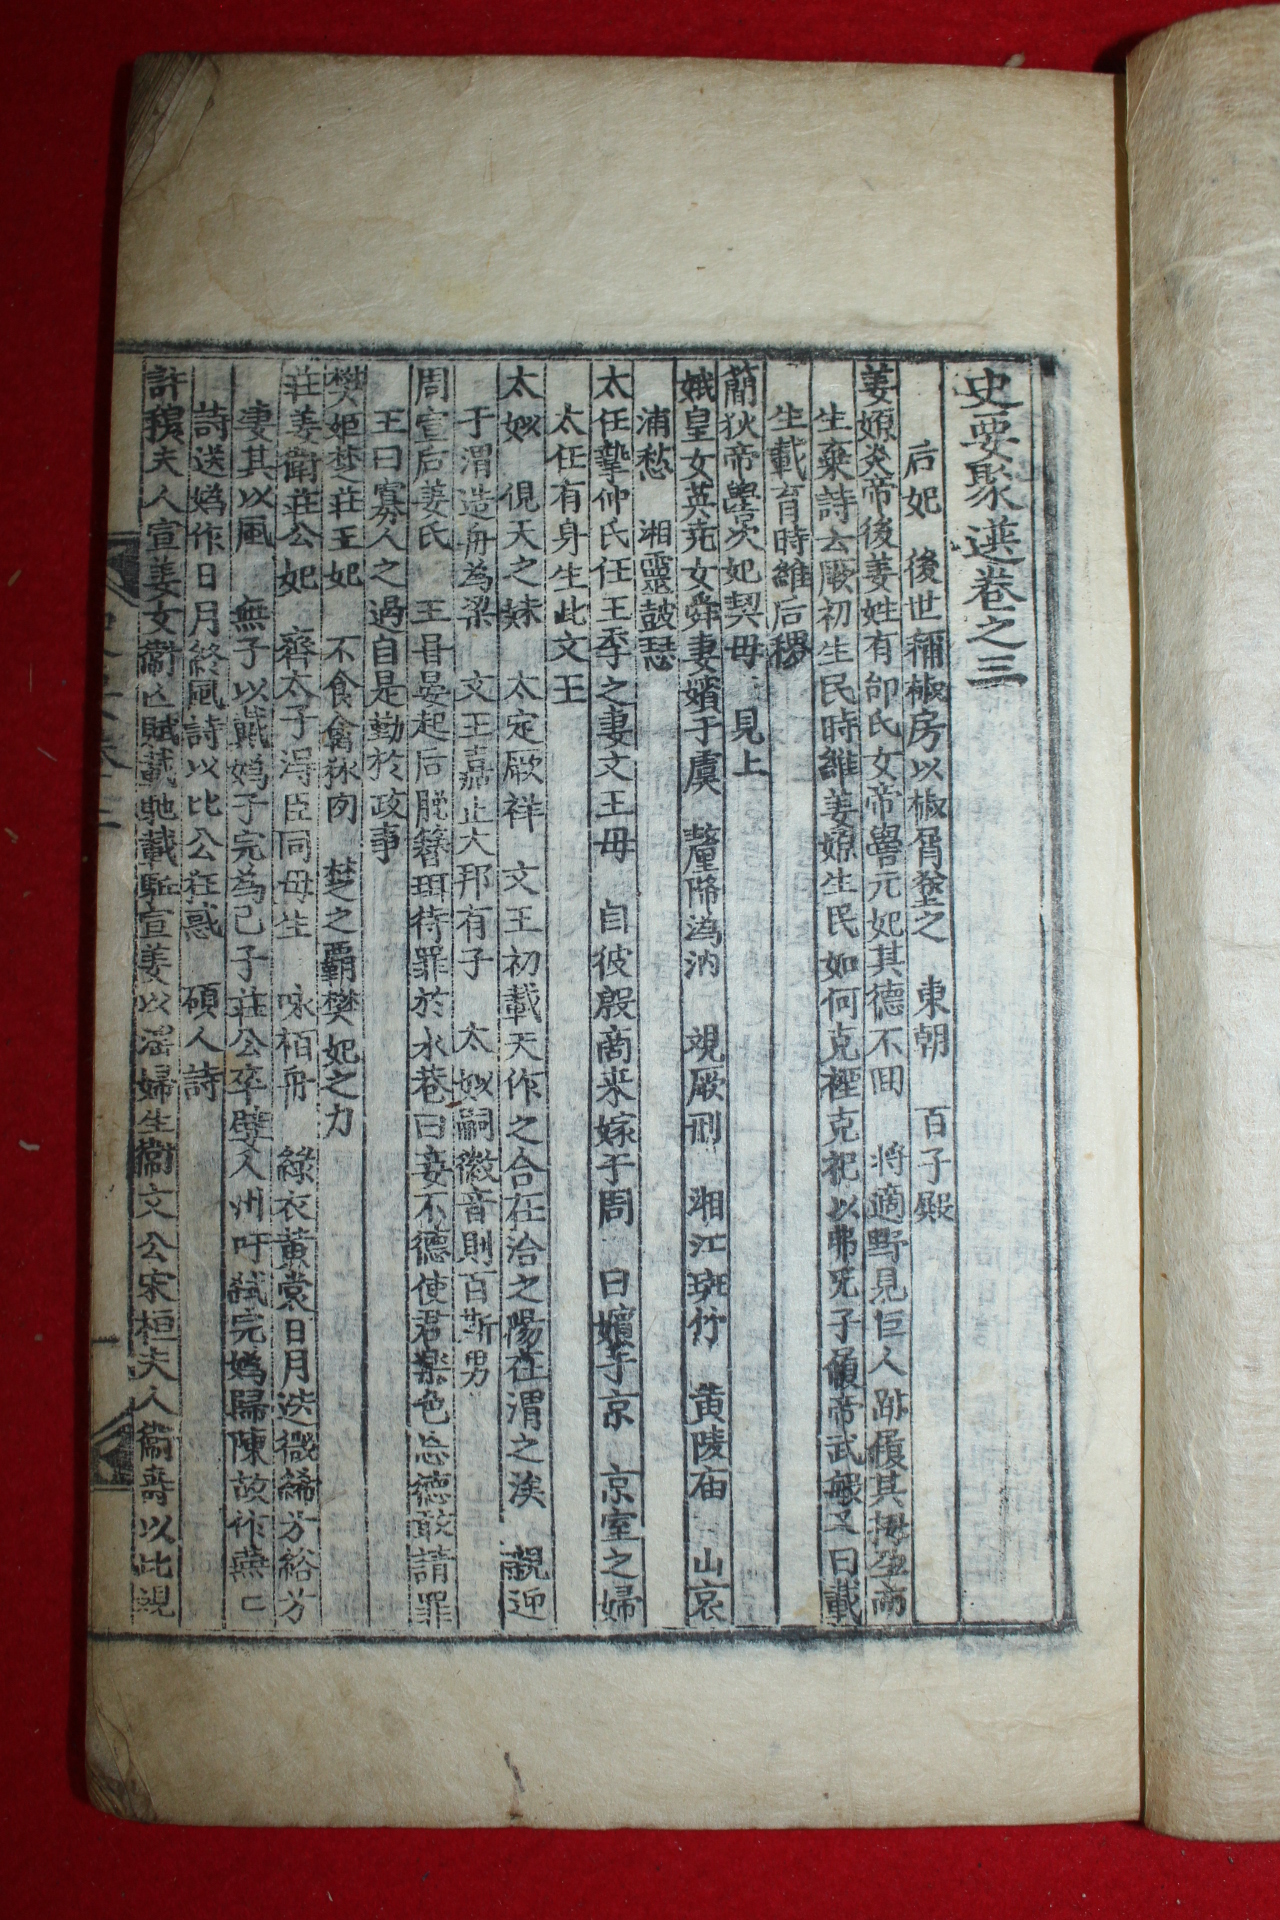 史要聚選卷之三
后妃 後世稱椒房以椒屑塗之 東朝 百子殿
姜嫄炎帝後姜姓有邰氏女帝嚳元妃其德不回 將適野見巨人跡履其拇歪而
生棄詩云厥初生民時維姜嫄生民如何克禋克祀以弗旡子履帝武敏又曰載
生載育時維后稷
蕳狄帝嚳次妃契母 見上
娥皇女英尭女舜妻嬪于虞 釐降溈汭 覌厥刑 湘江斑竹 黄陵庙 山哀
浦愁 湘靈鼓瑟
太任摯仲氏任王季之妻文王母 自彼殷商来嫁于周 曰嬪于京 京室之婦
太任有身生此文王
太姒 俔天之妹 太定厥祥 文王初載天作之合在洽之陽在渭之涘 親迎
于渭造舟為梁 文王嘉止大邦有子 太姒嗣徽音則百斯男
周宣后姜氏 王甞晏起后脫簮珥待罪於永巷曰妾不德使君楽色忘德敢請罪
王曰寡人之過自是勤於政事
樊姬楚莊王妃 不食禽獸肉 楚之覇樊妃之力
莊姜衛莊公妃 齊太子淂臣同母生 咏栢舟 緑衣黄裳日月迭微絺兮綌兮
凄其以風 無子以戴媯子完為己子莊公卒嬖人州吁弑完媯歸陳故作燕燕
詩送媯作日月終風詩以比公狂惑 碩人詩
許穆夫人宣姜女衛亡賦載馳載駈宣姜以滛婦生衛文公宋桓夫人衛壽以此覌